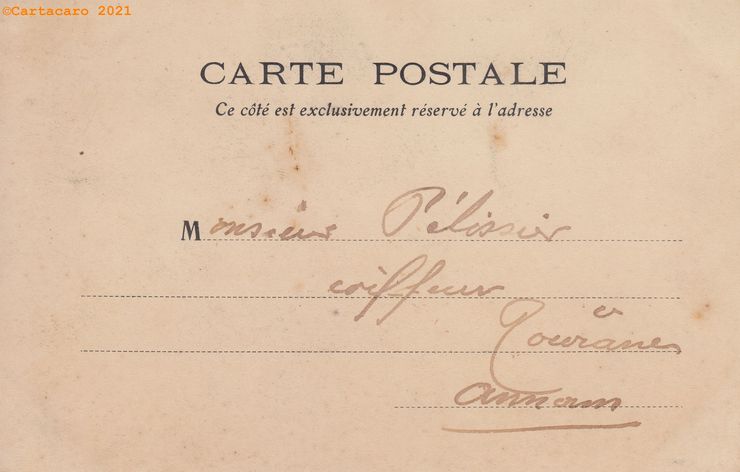 ©Cartacaro 2021
CARTE POSTALE
Ce côté est exclusivement réservé à l'adresse
Monsieur Pélissier
coiffeur
à
Tourane
Annam